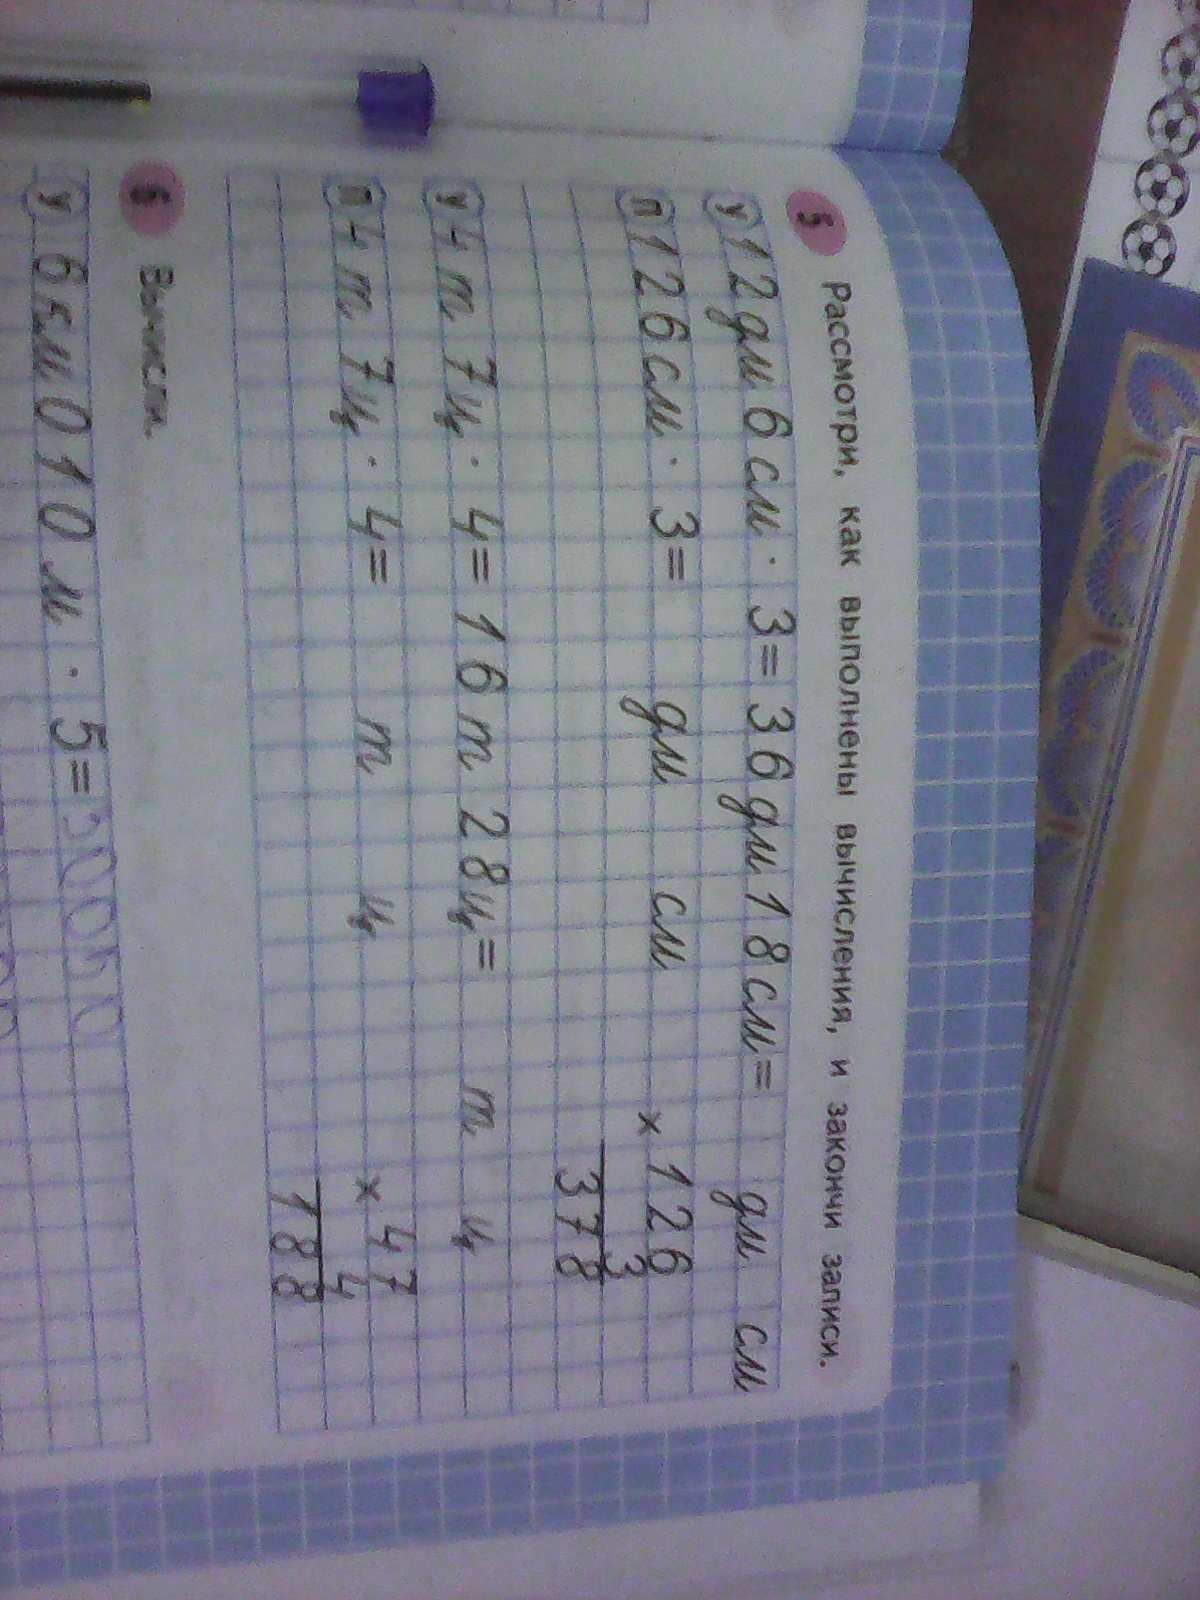 5 Рассмотри, как выполнены вычисления, и закончи записи.
у 12 дм 6 см · 3 = 36 дм 18 см = дм см
п 126 см · 3 = дм см × 126
3
378
у 4 т 7 ц · 4 = 16 т 28 ц = т ц
п 4 т 7 ц · 4 = т ц × 47
4
188
6 Вычисли.
у 6 км 010 м · 5 =